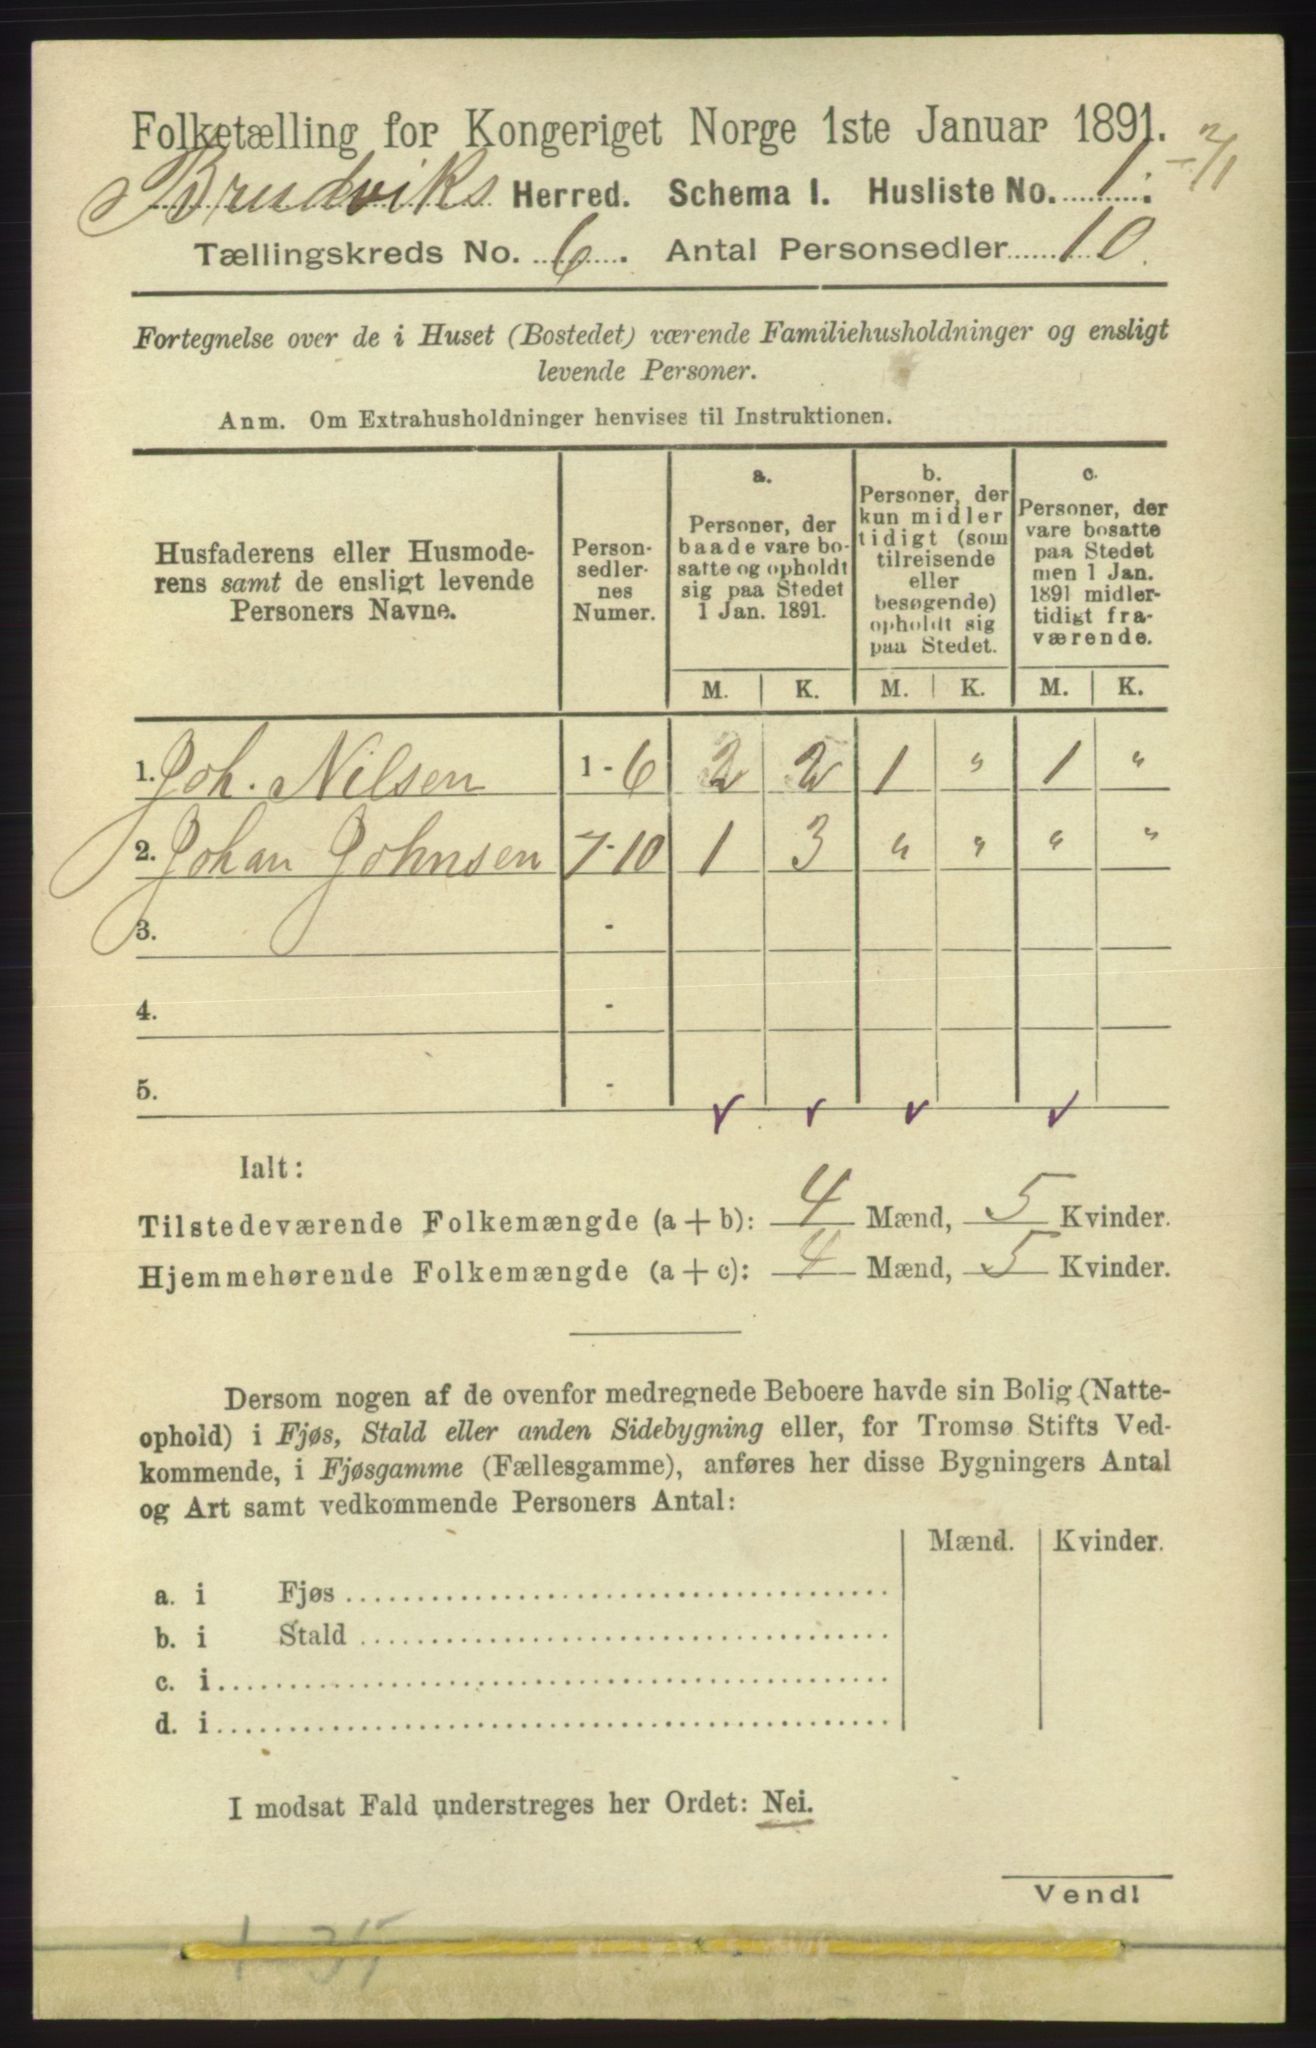 Folketælling for Kongeriget Norge 1ste Januar 1891.
Brudviks Herred. Schema I. Husliste No. 1. - 2/1
Tællingskreds No. 6. Antal Personsedler 10.
Fortegnelse over de i Huset (Bostedet) værende Familiehusholdninger og ensligt
levende Personer.
Anm. Om Extrahusholdninger henvises til Instruktionen.
Husfaderens eller Husmode-
rens samt de ensligt levende
Personers Navne.
Person-
sedler-
nes
Numer.
a.
Personer, der
baade vare bo-
satte og opholdt
sig paa Stedet
1 Jan. 1891.
M. K.
b.
Personer, der
kun midler
tidigt (som
tilreisende
eller
besøgende)
opholdt sig
paa Stedet.
M. K.
c.
Personer, der
vare bosatte
paa Stedet
men 1 Jan.
1891 midler-
tidigt fra-
værende.
M. K.
1. Joh. Nilsen 1 - 6 2 2 1 " 1 "
2. Johan Johnsen 7-10 1 3 " " " "
3. -
4. -
5. -
Ialt:
Tilstedeværende Folkemængde (a + b): 4 Mænd, 5 Kvinder.
Hjemmehørende Folkemængde (a + c): 4 Mænd, 5 Kvinder.
Dersom nogen af de ovenfor medregnede Beboere havde sin Bolig (Natte-
ophold) i Fjøs, Stald eller anden Sidebygning eller, for Tromsø Stifts Ved-
kommende, i Fjøsgamme (Fællesgamme), anføres her disse Bygningers Antal
og Art samt vedkommende Personers Antal:
Mænd. Kvinder.
a. i Fjøs
b. i Stald
c. i
d. i
I modsat Fald understreges her Ordet: Nei.
Vend!